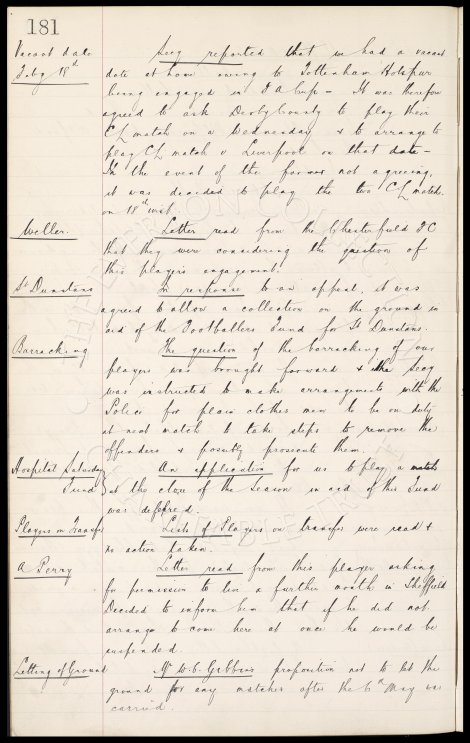 181
Vacant date
Feby 18th
Secy reported that we had a vacant
date at home owing to Tottenham Hotspur
being engaged in F A Cup - It was therefore
agreed to ask Derby County to play their
CL match on a Wednesday & to arrange to
play CL match v Liverpool on that date -
In the event of the former not agreeing,
it was decided to play the two CL matches
on 18th inst.
Weller.
Letter read from the Chesterfield FC
that they were considering the question of
this player's engagement.
St Dunstans
In response to an appeal, it was
agreed to allow a collection on the ground in
aid of the Footballers Fund for St Dunstans.
Barracking
The question of the barracking of our
players was brought forward & the Secy
was instructed to make arrangements with the
Police for plain clothes men to be on duty
at next match to take steps to remove the
offenders & possibly prosecute them.
Hospital Saturday
Fund
An application for us to play a match
at the close of the Season in aid of this Fund
was deferred.
Players on Transfer
Lists of Players on transfer were read &
no action taken.
A Perry
Letter read from this player asking
for permission to live a further month in Sheffield
Decided to inform him that if he did not
arrange to come here at once he would be
suspended.
Letting of Ground
Mr W.C. Gibbins proposition not to let the
ground for any matches after the 6th May was
carried.